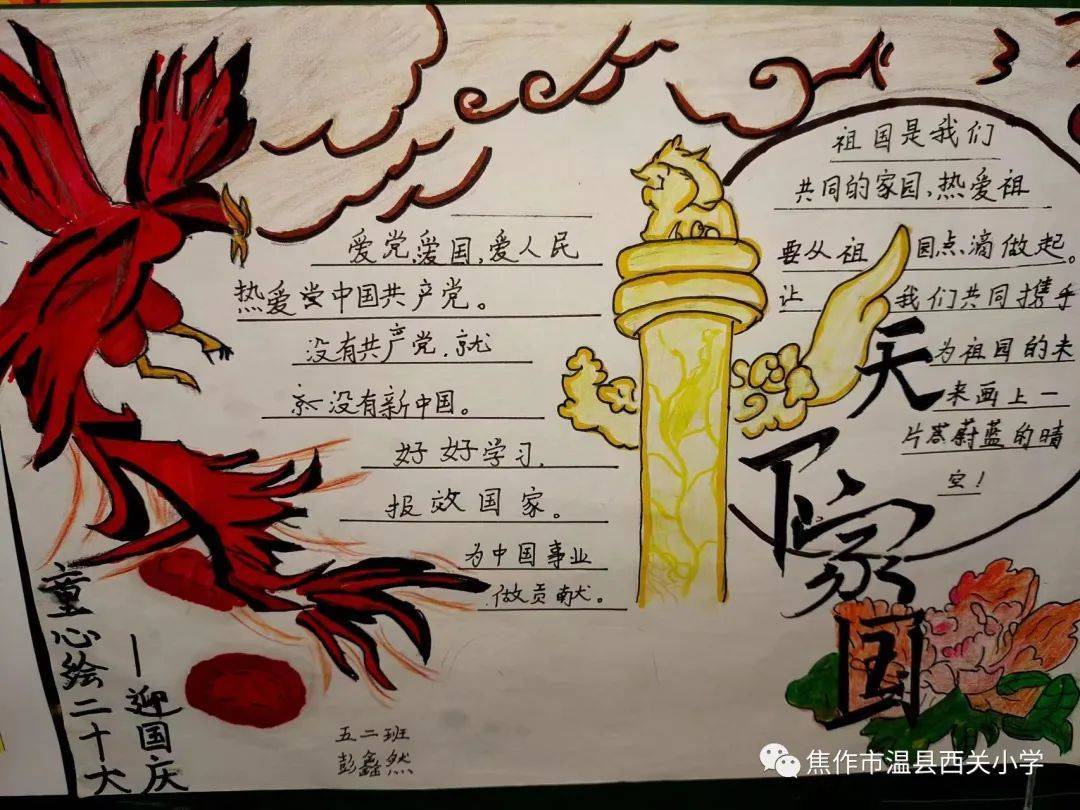 爱党,爱国,爱人民
热爱党中国共产党。
没有共产党,就
就没有新中国。
好好学习,
报效国家。
为中国事业
做贡献。
祖国是我们
共同的家园,热爱祖
要从祖国点滴做起。
让我们共同携手
为祖国的未
来画上一
片蔚蓝的晴
空!
天下家国
童心绘二十大
—迎国庆
五二班
彭鑫然
焦作市温县西关小学